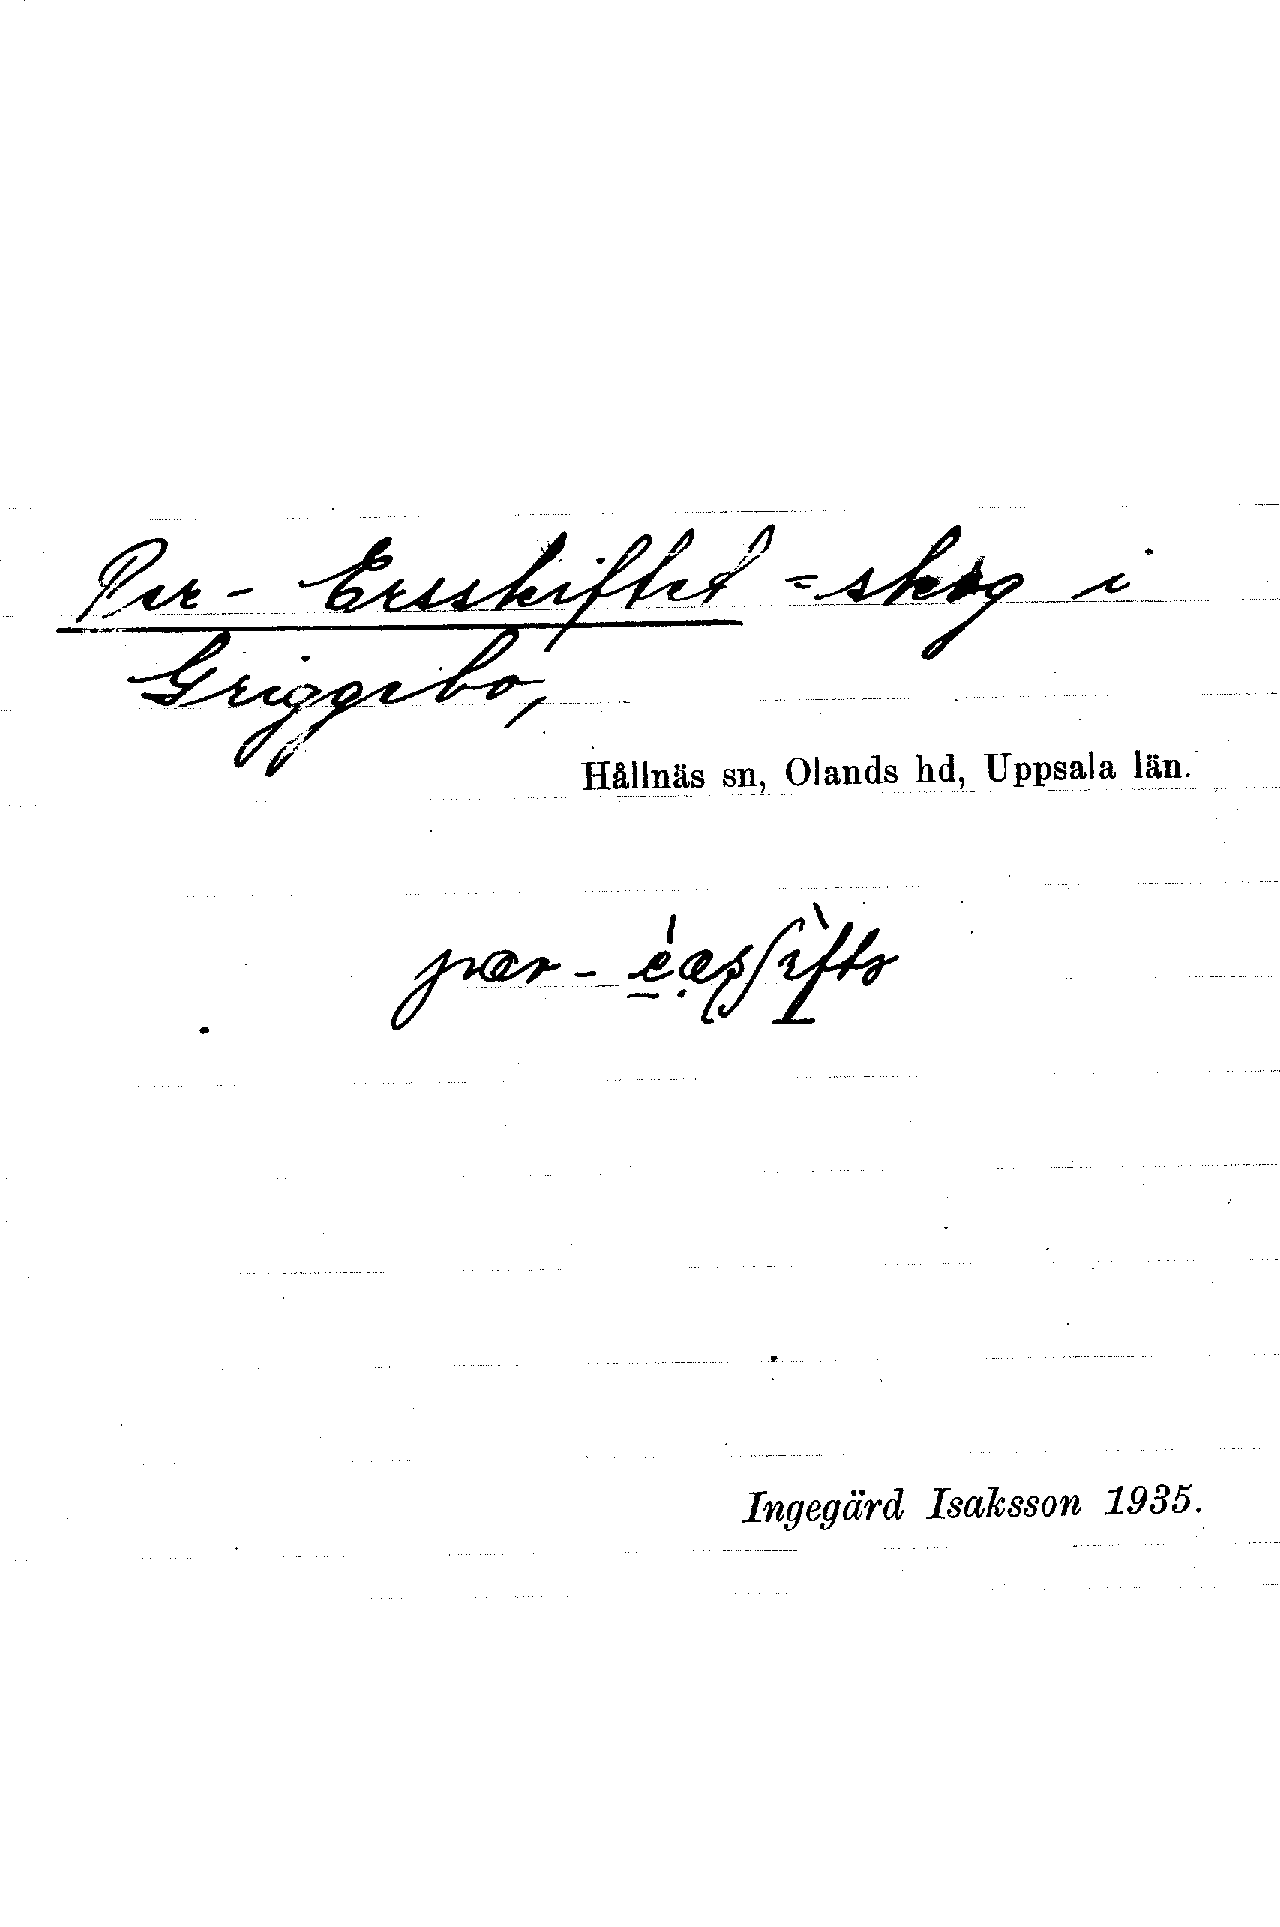 Per-Ersskiftet = skog i
Griggebo,
Hållnäs sn, Olands hd, Uppsala län.
Ingegärd Isaksson 1935.